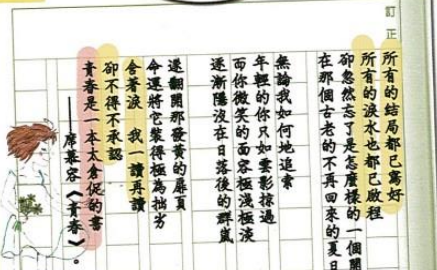 訂正
所有的結局都已寫好
所有的淚水也都已啟程
卻忽然忘了是怎麼樣的一個開
在那個古老的不再回來的夏日
無論我如何地追索
年輕的你只如雲影掠過
而你微笑的面容極淺極淡
逐漸隱沒在日落後的群嵐
遂翻開那發黃的扉頁
命運將它裝得極為拙劣
含著淚 我一讀再讀
卻不得不承認
青春是一本太倉促的書
——席慕容《青春》。